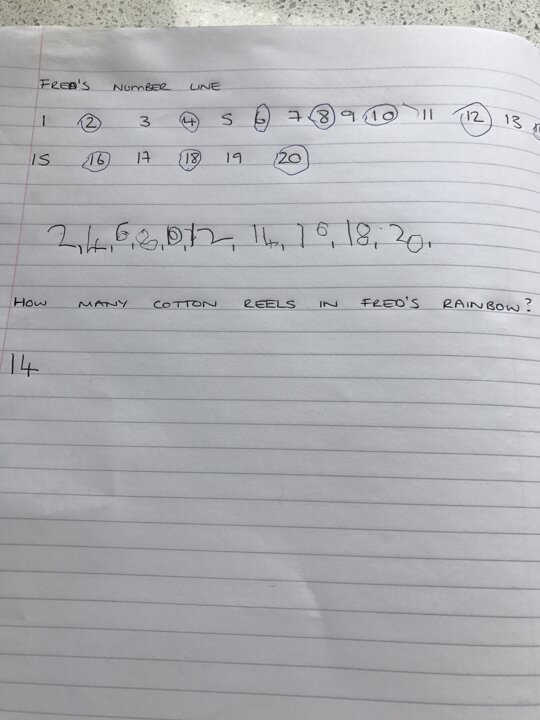 FRED'S NUMBER LINE
1 2 3 4 5 6 7 8 9 10 11 12 13
15 16 17 18 19 20
2,4,6,8,10,12, 14, 16, 18, 20.
HOW MANY COTTON REELS IN FRED'S RAINBOW?
14